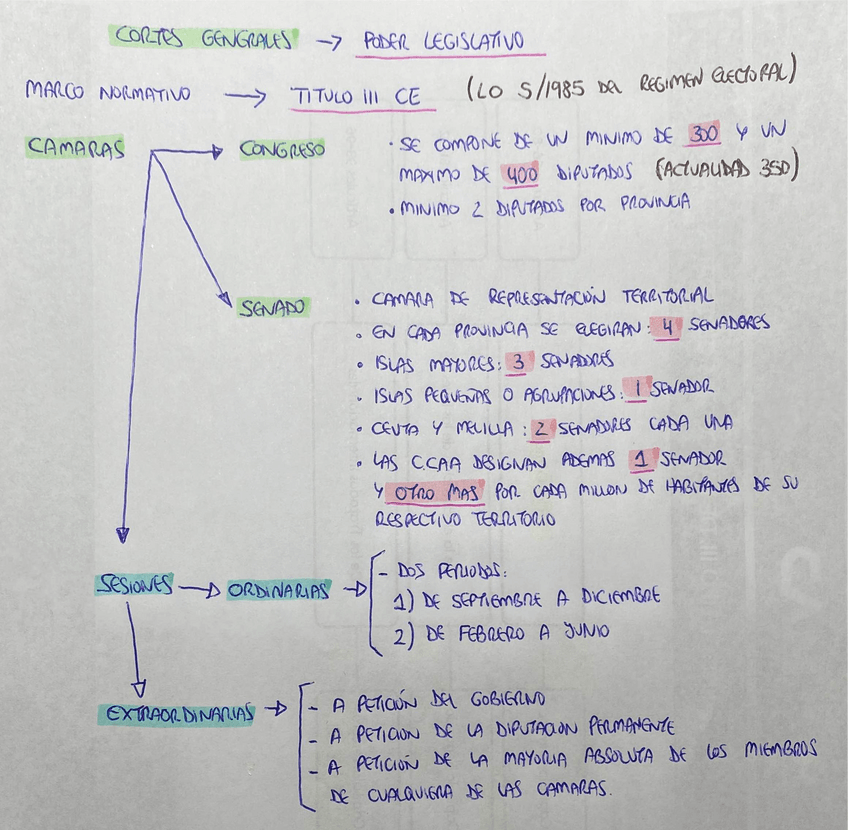 CORTES GENERALES → PODER LEGISLATIVO
MARCO NORMATIVO → TITULO III CE (LO 5/1985 DEL REGIMEN ELECTORAL)
CAMARAS → CONGRESO
· SE COMPONE DE UN MINIMO DE 300 Y UN
MAXIMO DE 400 DIPUTADOS (ACTUALIDAD 350)
· MINIMO 2 DIPUTADOS POR PROVINCIA
SENADO
· CAMARA DE REPRESENTACIÓN TERRITORIAL
· EN CADA PROVINCIA SE ELEGIRAN: 4 SENADORES
· ISLAS MAYORES: 3 SENADORES
· ISLAS PEQUEÑAS O AGRUPACIONES: 1 SENADOR
· CEUTA Y MELILLA: 2 SENADORES CADA UNA
· LAS C.CAA DESIGNAN ADEMAS 1 SENADOR
Y OTRO MAS POR CADA MILLON DE HABITANTES DE SU
RESPECTIVO TERRITORIO
SESIONES → ORDINARIAS →
- DOS PERIODOS:
1) DE SEPTIEMBRE A DICIEMBRE
2) DE FEBRERO A JUNIO
EXTRAORDINARIAS →
- A PETICIÓN DEL GOBIERNO
- A PETICION DE LA DIPUTACION PERMANENTE
- A PETICIÓN DE LA MAYORIA ABSOLUTA DE LOS MIEMBROS
DE CUALQUIERA DE LAS CAMARAS.